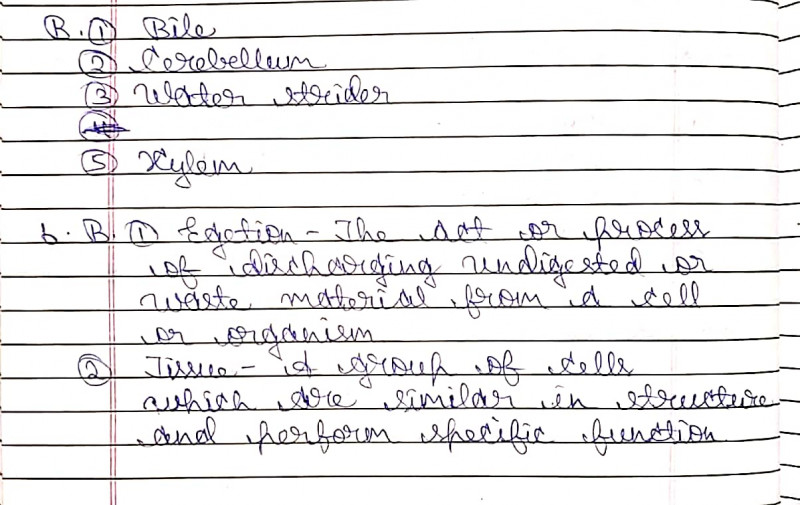 B. ① Bile
② Cerebellum
③ Water strider
⑤ Xylem
6. B. ① Egetion - The act or process
of discharging undigested or
waste material from a cell
or organism
② Tissue - A group of cells
which are similar in structure
and perform specific function